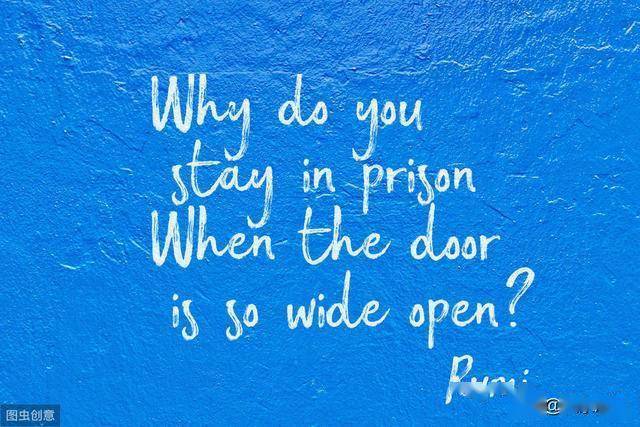 Why do you
stay in prison
When the door
is so wide open?
Rumi
图虫创意
@